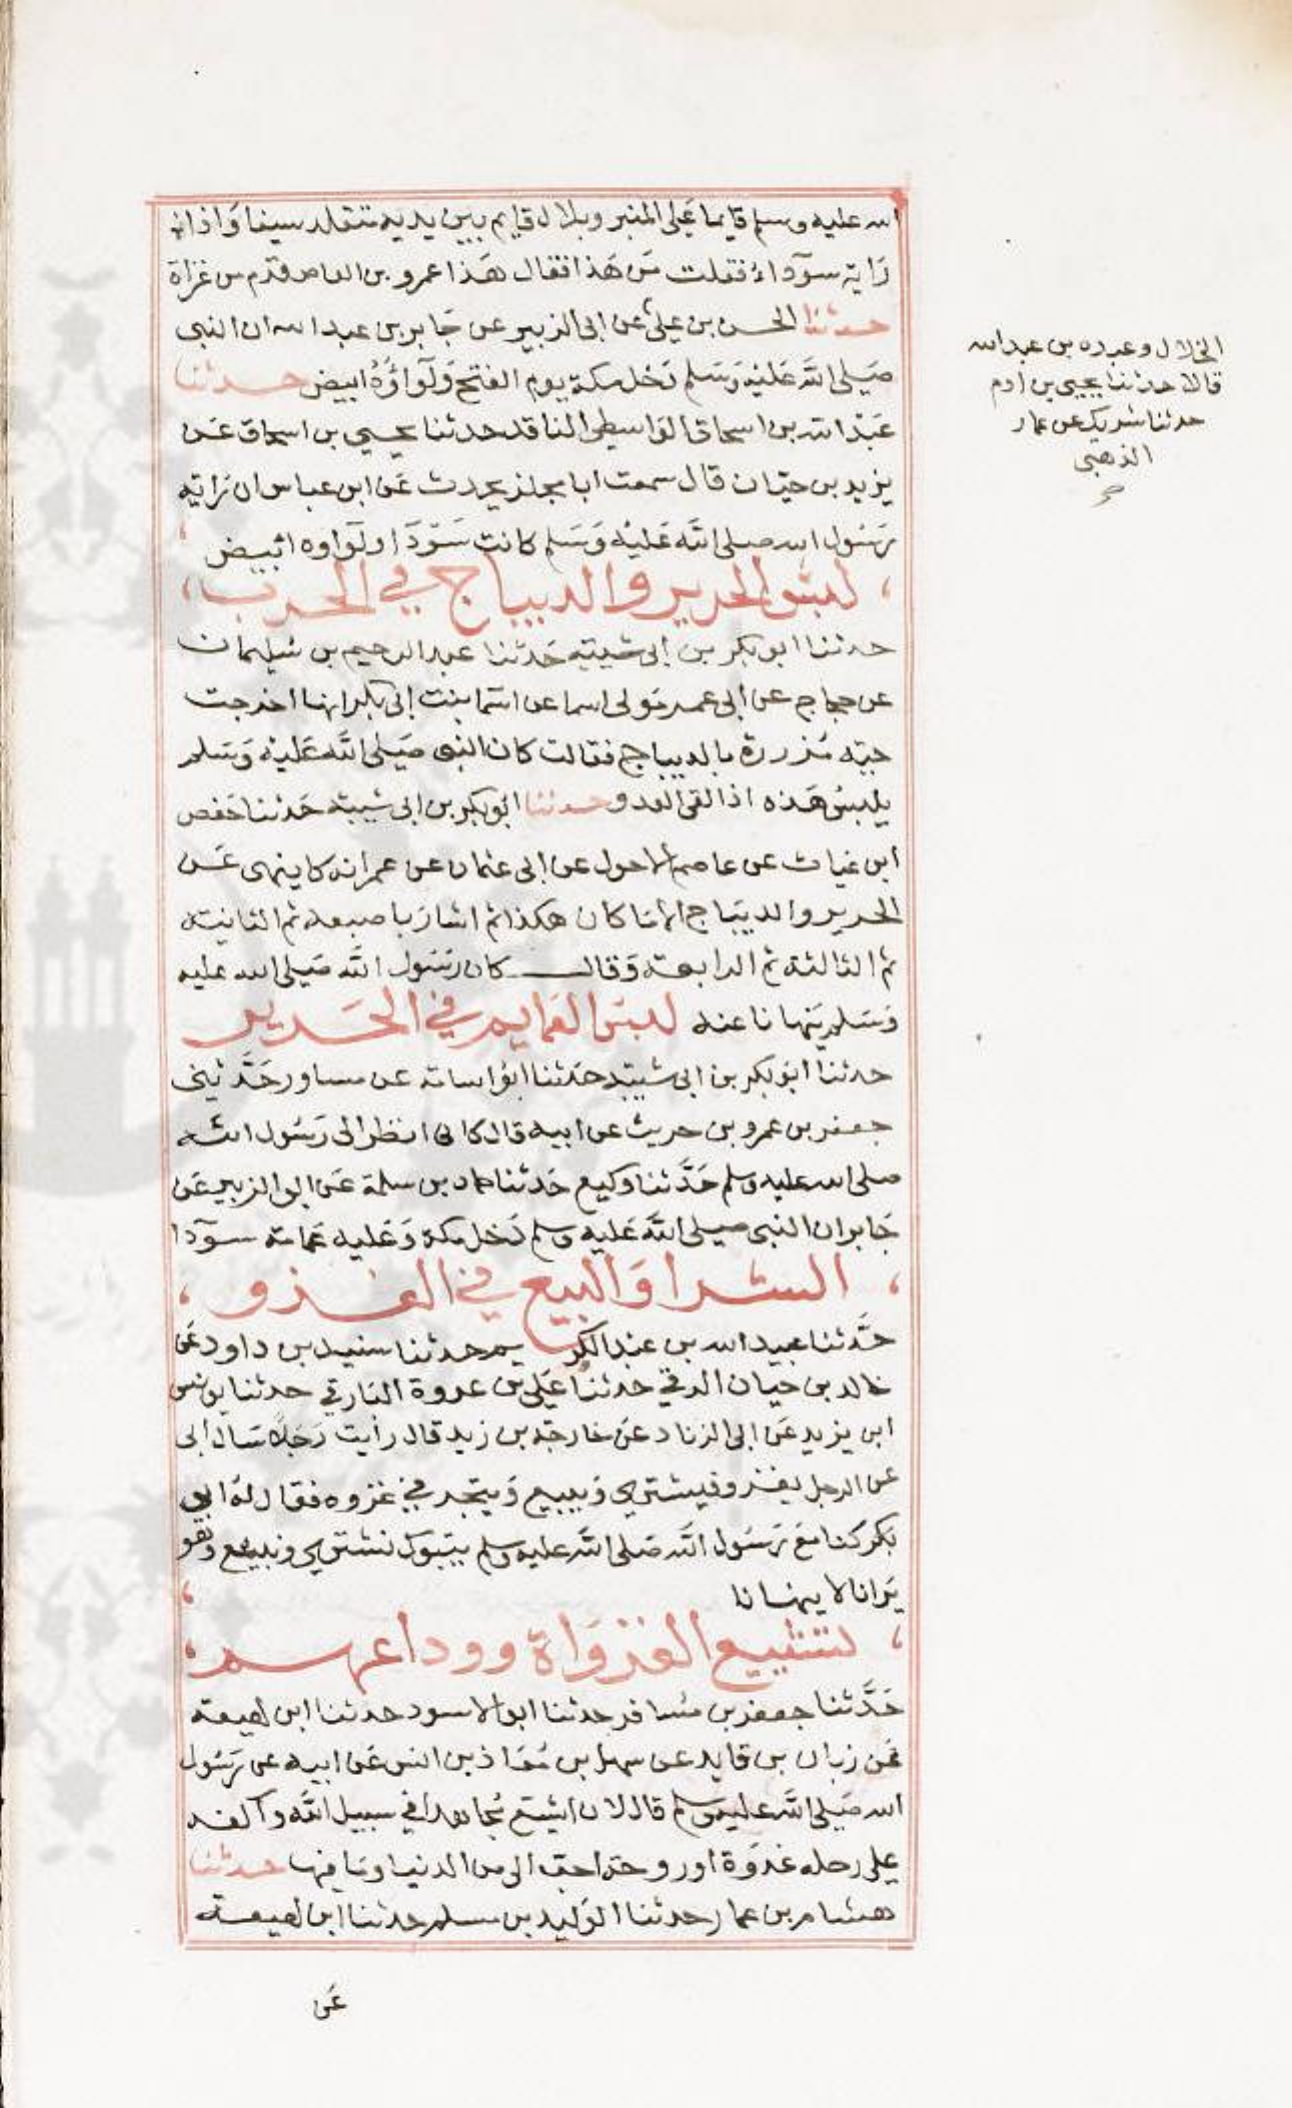 الله عليه وسلم قايما على المنبر وبلال قايم بين يديه متقلد سيفا واذا
راية سوداء فقلت من هذا فقال هذا عمرو بن العاص قدم من غزاة
حدثنا الحسن بن علي عن ابى الزبير عن جابر بن عبد الله ان النبى
صلى الله عليه وسلم دخل مكة يوم الفتح ولواؤه ابيض حدثنا
عبد الله بن اسحاق الواسطى الناقد حدثنا يحيى بن اسحاق عن
يزيد بن حيان قال سمعت ابا مجلز يحدث عن ابن عباس ان راية
رسول الله صلى الله عليه وسلم كانت سودا ولواوه ابيض
لبس الحرير والديباج في الحرب
حدثنا ابو بكر بن ابى شيبة حدثنا عبد الرحيم بن سليمان
عن حجاج عن ابى عمر مولى اسما عن اسما بنت ابى بكر انها اخرجت
جبة مزررة بالديباج فقالت كان النبى صلى الله عليه وسلم
يلبس هذه اذا لقى العدو حدثنا ابو بكر بن ابى شيبة حدثنا حفص
ابن غياث عن عاصم الاحول عن ابى عثمان عن عمر انه كا ينهى عن
الحرير والديباج الا ما كان هكذا ثم اشار باصبعه ثم الثانية
ثم الثالثة ثم الرابعة وقال كان رسول الله صلى الله عليه
وسلم ينهانا عنه لبس العمايم في الحرير
حدثنا ابو بكر بن ابى شيبة حدثنا ابو اسامة عن مساور حدثني
جعفر بن عمرو بن حريث عن ابيه قال كانى انظر الى رسول الله
صلى الله عليه وسلم حدثنا وكيع حدثنا حماد بن سلمة عن ابى الزبير عن
جابر ان النبى صلى الله عليه وسلم دخل مكة وعليه عمامة سودا
الشرا والبيع في الغزو
حدثنا عبيد الله بن عبد الكريم حدثنا سنيد بن داود عن
خالد بن حيان الرقي حدثنا علي بن عروة البارقي حدثنا يونس
ابن يزيد عن ابى الزناد عن خارجة بن زيد قال رأيت رجلا سال ابى
عن الرجل يغزو فيشتري ويبيع ويتجر في غزوه فقال له ابي
بكر كنا مع رسول الله صلى الله عليه وسلم بتبوك نشتري ونبيع وهو
يرانا لا ينهانا
لتشييع الغزواة ووداعهم
حدثنا جعفر بن مسافر حدثنا ابو الاسود حدثنا ابن لهيعة
عن زبان بن فايد عن سهل بن معاذ بن انس عن ابيه عن رسول
الله صلى الله عليه وسلم قال لان اشيع مجاهدا في سبيل الله
على رحله غدوة او روحة احب الى من الدنيا وما فيها حدثنا
هشام بن عمار حدثنا الوليد بن مسلم حدثنا ابن لهيعة
عن
الخلال وعبده بن عبد الله
قالا حدثنا يحيى بن ادم
حدثنا شريك عن عمار
الذهبى
صح